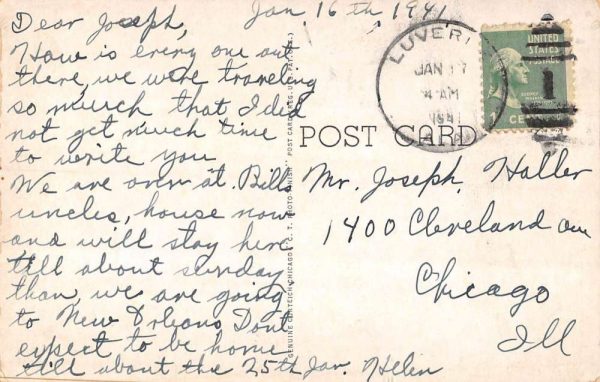 Jan 16th 1941
Dear Joseph,
How is every one out
there, we were traveling
so much that I ded
not get much time
to write you
We are over at Bills
uncles, house now
and will stay here
till about sunday
than, we are going
to New Orleans, Dont
expect to be home
till about the 25th Jan. Helen
POST CARD
Mr. Joseph Haller
1400 Cleveland Ave
Chicago
Ill
LUVER
JAN 17
4 AM
1941
UNITED
STATES
POSTAGE
1
CENT
GENUINE CURTEICH-CHICAGO "C. T. PHOTO-FINISH" POST CARD (REG. U.S. PAT. OFF.)